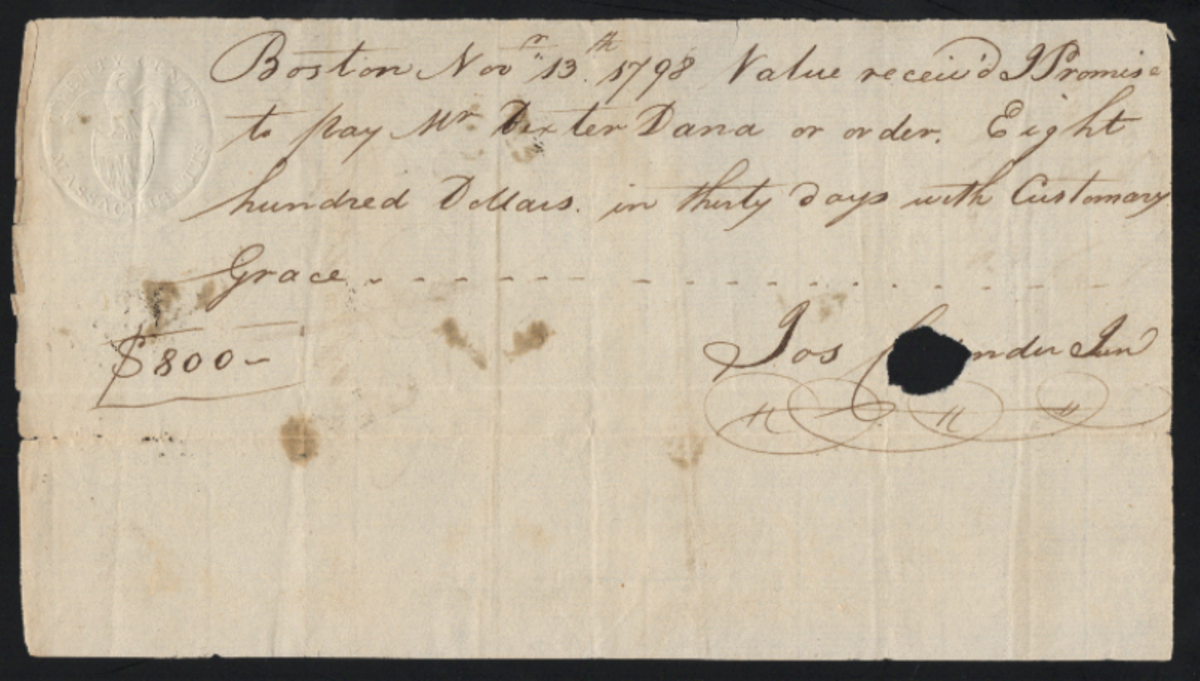 Boston Novr 13th 1798 Value receiv'd I Promise
to pay Mr Dexter Dana or order. Eight
hundred Dollars. in thirty days with Customary
Grace
$800-
Jos Jun
CENTS
MASSACHUSETTS